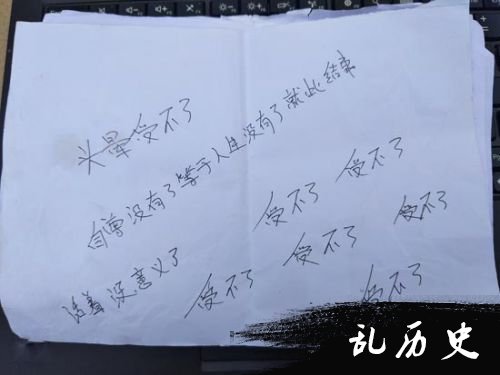 头晕受不了
自尊没有了等于人生没有了就此结束
受不了 受不了
受不了 受不了
活着没意义了
受不了
受不了
乱历史